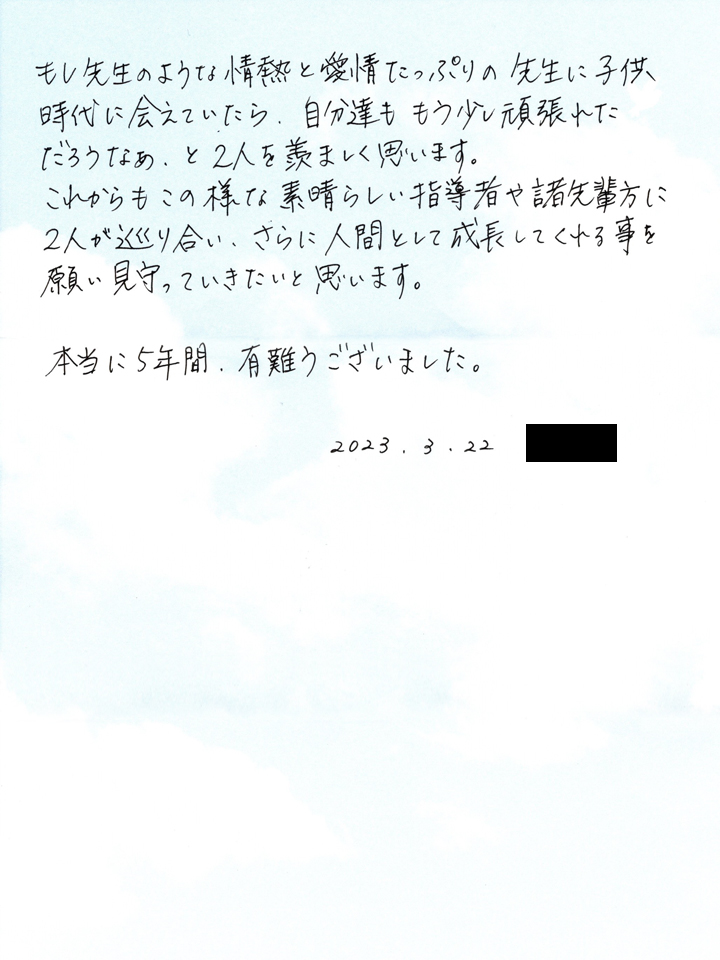 もし先生のような情熱と愛情たっぷりの先生に子供
時代に会えていたら、自分達ももう少し頑張れた
だろうなぁ、と2人を羨ましく思います。
これからもこの様な素晴らしい指導者や諸先輩方に
2人が巡り合い、さらに人間として成長してくれる事を
願い見守っていきたいと思います。
本当に5年間、有難うございました。
2023.3.22